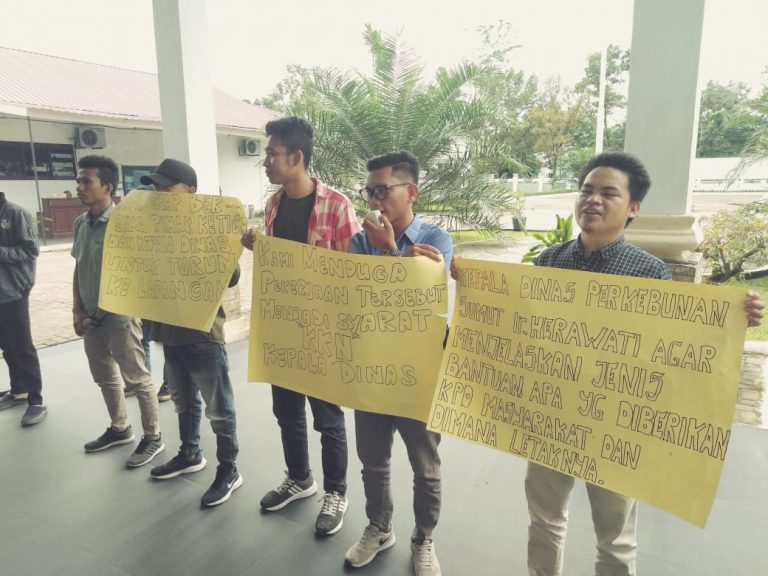 SIAP BER-
SIPA PIHAK KETIGA
DAN KEPALA DINAS
UNTUK TURUN
KE LAPANGAN
KAMI MENDUGA
PEKERJAAN TERSEBUT
MENJADI SYARAT
"KKN"
KEPALA DINAS
KEPALA DINAS PERKEBUNAN
SUMUT Ir. HERAWATI AGAR
MENJELASKAN JENIS
BANTUAN APA YG DIBERIKAN
KPD MASYARAKAT DAN
DIMANA LETAKNYA.